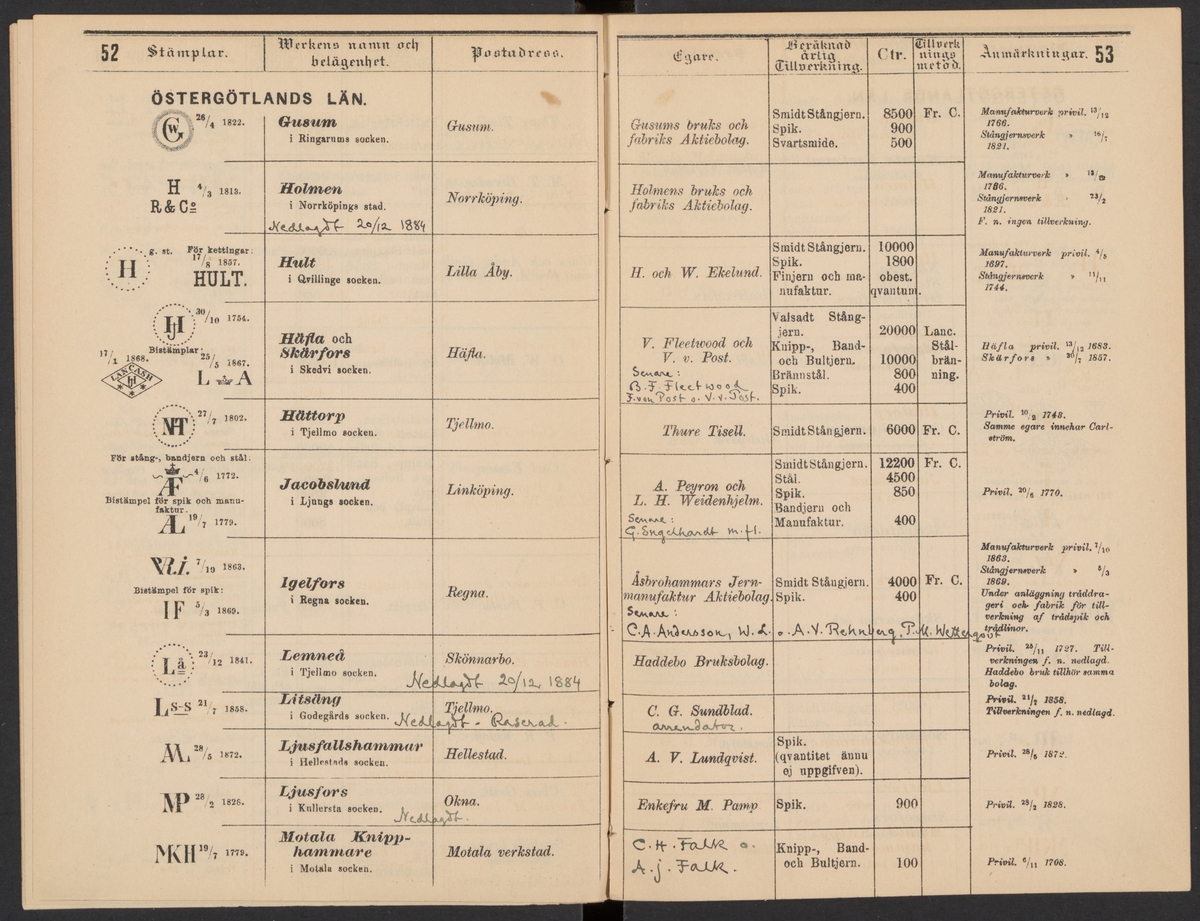 52 Stämplar. Werkens namn och belägenhet. Postadress.
ÖSTERGÖTLANDS LÄN.
GW 26/4 1822. Gusum Gusum.
i Ringarums socken.
H 4/3 1813. Holmen Norrköping.
R & Co i Norrköpings stad.
Nedlagdt 20/12 1884
g. st. För kettingar:
H 17/8 1857. Hult Lilla Åby.
HULT. i Qvillinge socken.
HJ 30/10 1754.
Bistämplar: Häfla och Häfla.
17/1 1868. 25/5 1867. Skärfors
LANCASH L A i Skedvi socken.
27/7 1802. Hättorp Tjellmo.
i Tjellmo socken.
För stång-, bandjern och stål:
Æ 4/6 1772. Jacobslund Linköping.
Bistämpel för spik och manu- i Ljungs socken.
faktur.
19/7 1779.
V.R.i. 7/10 1863. Igelfors Regna.
Bistämpel för spik: i Regna socken.
IF 5/3 1869.
Lå 23/12 1841. Lemneå Skönnarbo.
i Tjellmo socken. Nedlagdt 20/12 1884
Ls-s 21/7 1858. Litsäng Tjellmo.
i Godegårds socken. Nedlagdt - Raserad.
28/5 1872. Ljusfallshammar Hellestad.
i Hellestads socken.
MP 28/2 1828. Ljusfors Okna.
i Kullersta socken. Nedlagdt.
MKH 19/7 1779. Motala Knipp- Motala verkstad.
hammare
i Motala socken.
Egare. Beräknad årlig Tillverkning. Ctr. Tillverknings metod. Anmärkningar. 53
Gusums bruks och Smidt Stångjern. 8500 Fr. C. Manufakturverk privil. 13/12
fabriks Aktiebolag. Spik. 900 1766.
Svartsmide. 500 Stångjernsverk » 18/7
1821.
Holmens bruks och Manufakturverk »
fabriks Aktiebolag. 1786.
Stångjernsverk 23/2
1821.
F. n. ingen tillverkning.
Smidt Stångjern. 10000
H. och W. Ekelund. Spik. 1800 Manufakturverk privil. 4/5
1697.
Finjern och ma- obest. Stångjernsverk » 11/11
nufaktur. qvantum. 1744.
Valsadt Stång-
jern. 20000 Lanc.
V. Fleetwood och Knipp-, Band- Stål- Häfla privil. 13/12 1683.
V. v. Post. och Bultjern. 10000 brän- Skärfors » 30/7 1857.
Senare: Brännstål. 800 ning.
B. F. Fleetwood Spik. 400
F. von Post o. V. v. Post.
Thure Tisell. Smidt Stångjern. 6000 Fr. C. Privil. 10/2 1748.
Samme egare innehar Carl-
ström.
Smidt Stångjern. 12200 Fr. C.
A. Peyron och Stål. 4500
L. H. Weidenhjelm. Spik. 850 Privil. 20/6 1770.
Senare: Bandjern och
G. Engelhardt m. fl. Manufaktur. 400
Manufakturverk privil. 7/10
1863.
Åsbrohammars Jern- Smidt Stångjern. 4000 Fr. C. Stångjernsverk » 5/3
1869.
manufaktur Aktiebolag. Spik. 400 Under anläggning tråddra-
geri och fabrik för till-
Senare: verkning af trådspik och
C. A. Andersson, W. L. o. A. V. Rehnberg, P. M. Wetterqvist trådlinor.
Haddebo Bruksbolag. Privil. 25/11 1727. Till-
verkningen f. n. nedlagd.
Haddebo bruk tillhör samma
bolag.
C. G. Sundblad. Privil. 21/7 1858.
arrendator. Tillverkningen f. n. nedlagd.
A. V. Lundqvist. Spik. Privil. 28/5 1872.
(qvantitet ännu
ej uppgifven).
Enkefru M. Pamp Spik. 900 Privil. 28/2 1828.
C. H. Falk o. Knipp-, Band-
A. J. Falk. och Bultjern. 100 Privil. 6/11 1708.